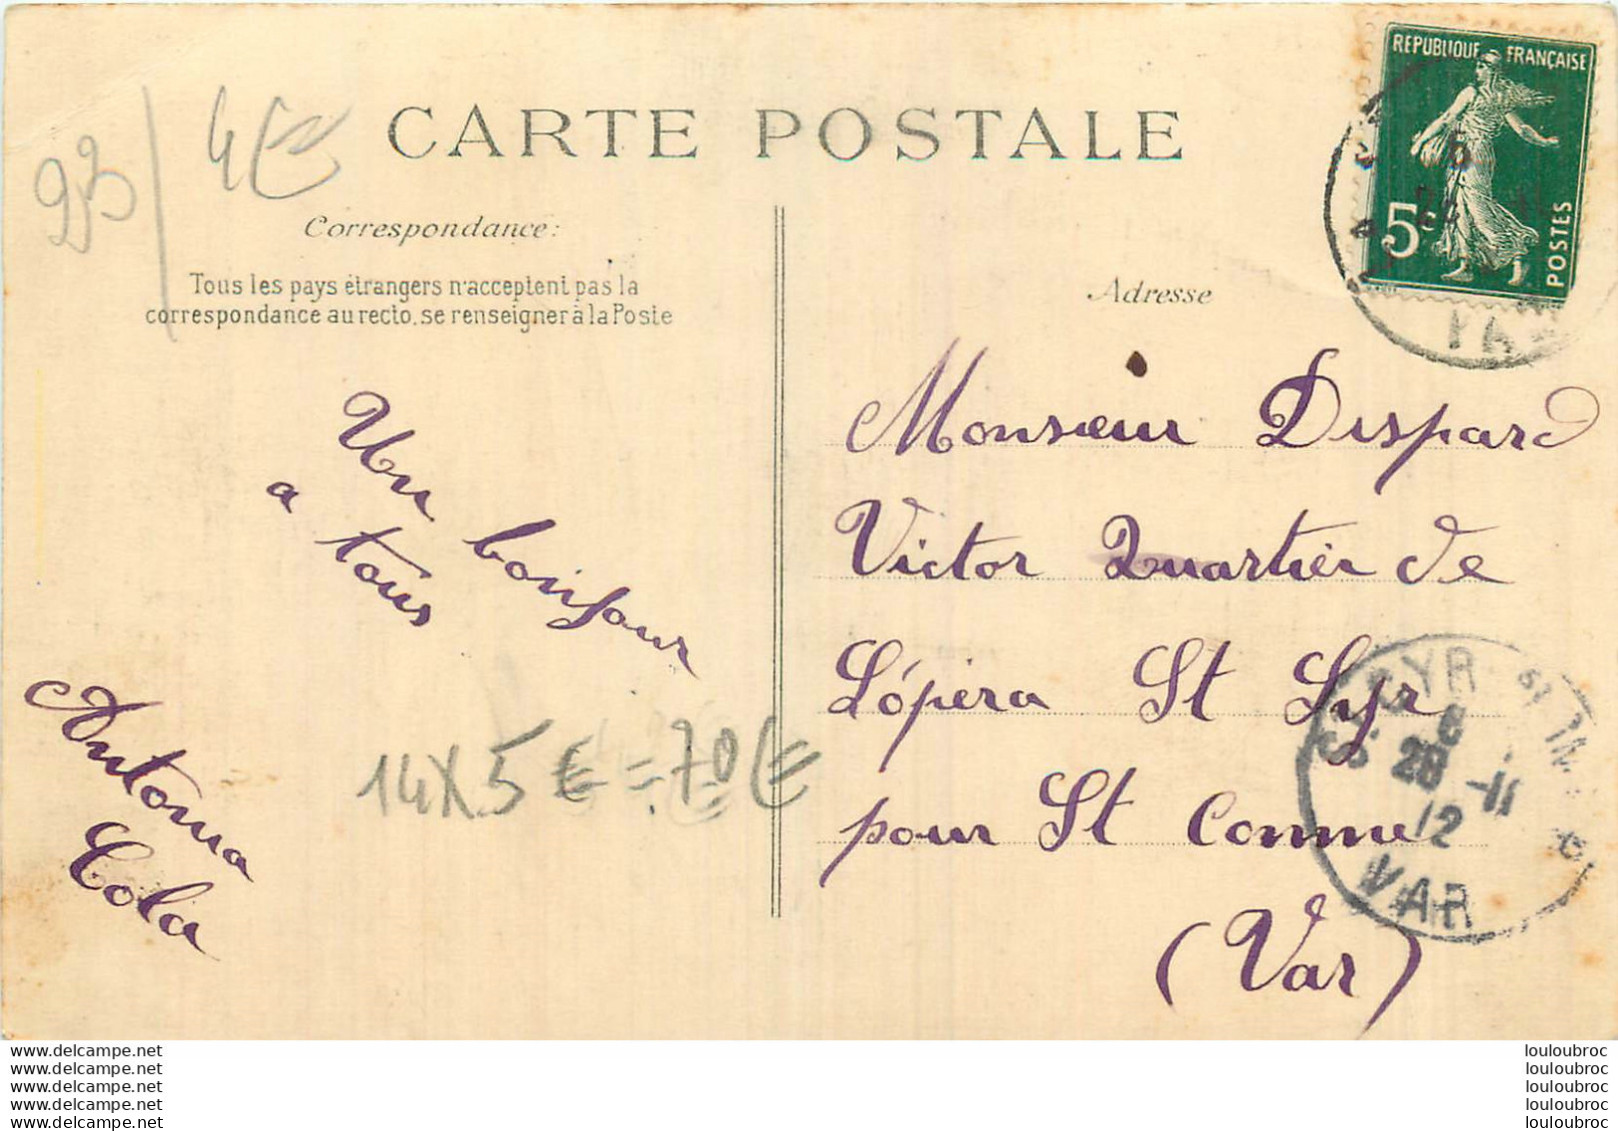 CARTE POSTALE
REPUBLIQUE FRANÇAISE
5c
POSTES
93/
4€
Correspondance:
Tous les pays étrangers n'acceptent pas la
correspondance au recto, se renseigner à la Poste
Adresse
Un bonjour
a tous
Antonia
Cola
14 X 5 € = 70 €
Monsieur Dispard
Victor Quartier de
Lópéra St Syr
pour St Comme
(Var)
ST CYR
6
28 -11
12
VAR
www.delcampe.net
www.delcampe.net
www.delcampe.net
www.delcampe.net
www.delcampe.net
louloubroc
louloubroc
louloubroc
louloubroc
louloubroc